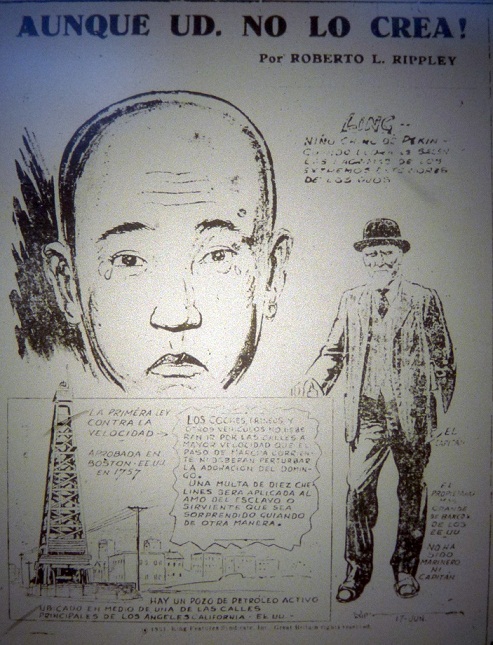 AUNQUE UD. NO LO CREA!
Por ROBERTO L. RIPPLEY
LING--
NIÑO DE PEKIN-
CUANDO LLORA LE SALEN
LAS LAGRIMAS DE LOS
EXTREMOS EXTERIORES
DE LOS OJOS
LA PRIMERA LEY
CONTRA LA
VELOCIDAD
APROBADA EN
BOSTON-EE.UU
EN 1757
LOS COCHES, TRINEOS Y
OTROS VEHICULOS NO DEBE-
RAN IR POR LAS CALLES A
MAYOR VELOCIDAD QUE EL
PASO DE MARCHA CORRIEN-
TE NI DEBERAN PERTURBAR
LA ADORACION DEL DOMIN-
GO.
UNA MULTA DE DIEZ CHE-
LINES SERA APLICADA AL
AMO DEL ESCLAVO O
SIRVIENTE QUE SEA
SORPRENDIDO GUIANDO
DE OTRA MANERA.
EL
EL
MAS
GRANDE
DE LOS
EE UU
NO HA
SIDO
MARINERO
NI
CAPITAN.
HAY UN POZO DE PETROLEO ACTIVO
UBICADO EN MEDIO DE UNA DE LAS CALLES
PRINCIPALES DE LOS ANGELES CALIFORNIA - EE.UU -
17-JUN.
King Features Syndicate, Inc., Great Britain rights reserved.